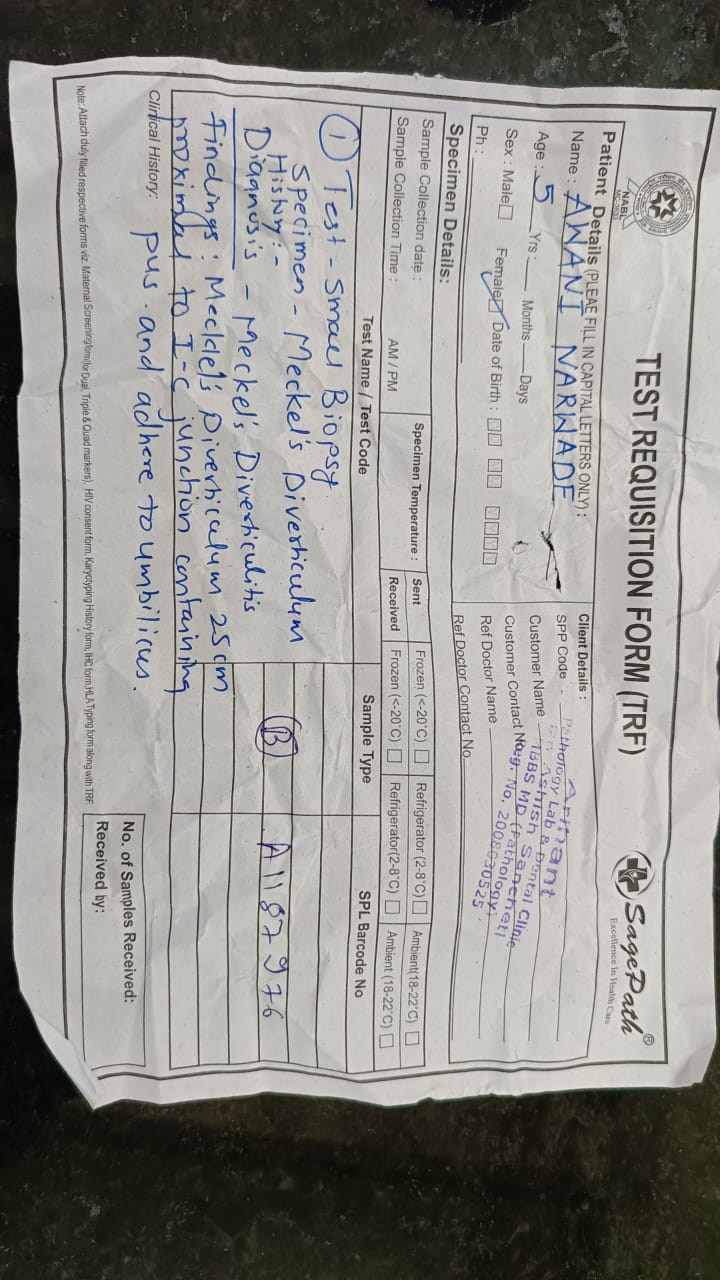 NABL
TEST REQUISITION FORM (TRF)
SagePath®
Excellence in Health Care
Patient Details (PLEAE FILL IN CAPITAL LETTERS ONLY) :
Name : AWANI NARWADE
Age : 5 Yrs : Months Days
Sex : Male Female Date of Birth :
Ph :
Client Details :
SPP Code
Customer Name
Customer Contact No
Ref Doctor Name
Ref Doctor Contact No
Arihant
Pathology Lab & Dental Clinic
Dr. Ashish Sancheti
MBBS MD (Pathology)
Reg. No. 2008030525
Specimen Details:
Sample Collection date :
Sample Collection Time : AM / PM
Specimen Temperature :
Sent Frozen (<-20°C) Refrigerator (2-8°C) Ambient(18-22°C)
Received Frozen (<-20°C) Refrigerator(2-8°C) Ambient (18-22°C)
Test Name / Test Code Sample Type SPL Barcode No
① Test - Small Biopsy
Specimen - Meckel's Diverticulum
History :-
Diagnosis - Meckel's Diverticulitis
B A1187976
Findings : Meckle's Diverticulum 25cm
proximal to I-C junction containing
Clinical History: pus. and adhere to umbilicus.
No. of Samples Received:
Received by:
Note: Attach duly filed respective forms viz. Maternal Screening form(for Dual, Triple & Quad markers), HIV consent form, Karyotyping History form, IHC form,HLA Typing form along with TRF.